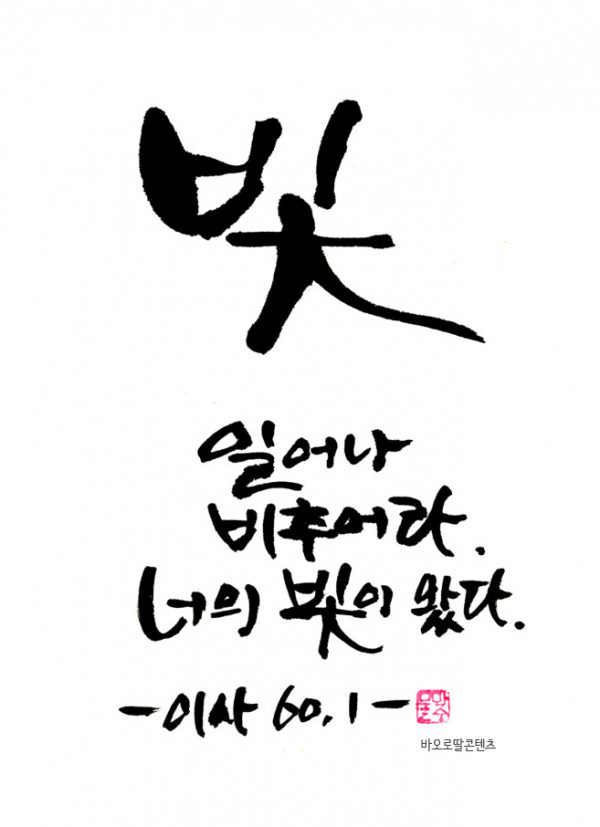 빛
일어나
비추어라.
너의 빛이 왔다.
-이사 60,1-
바오로딸콘텐츠